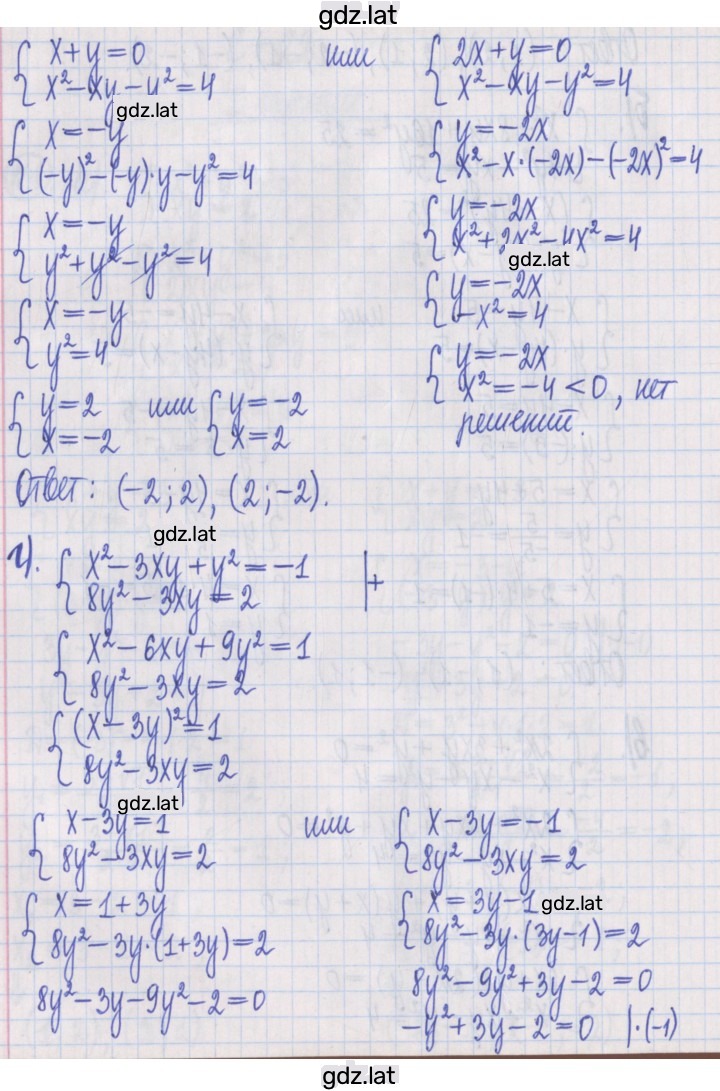 gdz.lat
{ x+y=0
x²-xy-y²=4
или
{ 2x+y=0
x²-xy-y²=4
gdz.lat
{ x=-y
(-y)²-(-y)·y-y²=4
{ y=-2x
x²-x·(-2x)-(-2x)²=4
{ x=-y
y²+y²-y²=4
{ y=-2x
x²+2x²-4x²=4
gdz.lat
{ x=-y
y²=4
{ y=-2x
-x²=4
{ y=2
x=-2
или
{ y=-2
x=2
{ y=-2x
x²=-4<0, нет
решений.
Ответ: (-2;2), (2;-2).
gdz.lat
г). { x²-3xy+y²=-1
8y²-3xy=2 |+
{ x²-6xy+9y²=1
8y²-3xy=2
{ (x-3y)²=1
8y²-3xy=2
gdz.lat
{ x-3y=1
8y²-3xy=2
или
{ x-3y=-1
8y²-3xy=2
{ x=1+3y
8y²-3y·(1+3y)=2
8y²-3y-9y²-2=0
{ x=3y-1
gdz.lat
8y²-3y·(3y-1)=2
8y²-9y²+3y-2=0
-y²+3y-2=0 |·(-1)
gdz.lat